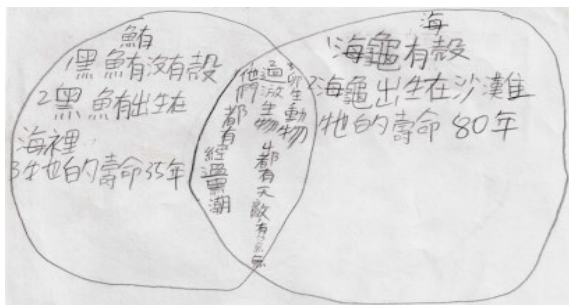 鮪
1黑鮪有沒有殼
2黑鮪有出生在
海裡
3牠的壽命35年
他們都有經過黑潮
洄游生物
3野生動物
4都有天敵有
海
1海龜有殼
2海龜出生在沙灘
牠的壽命80年